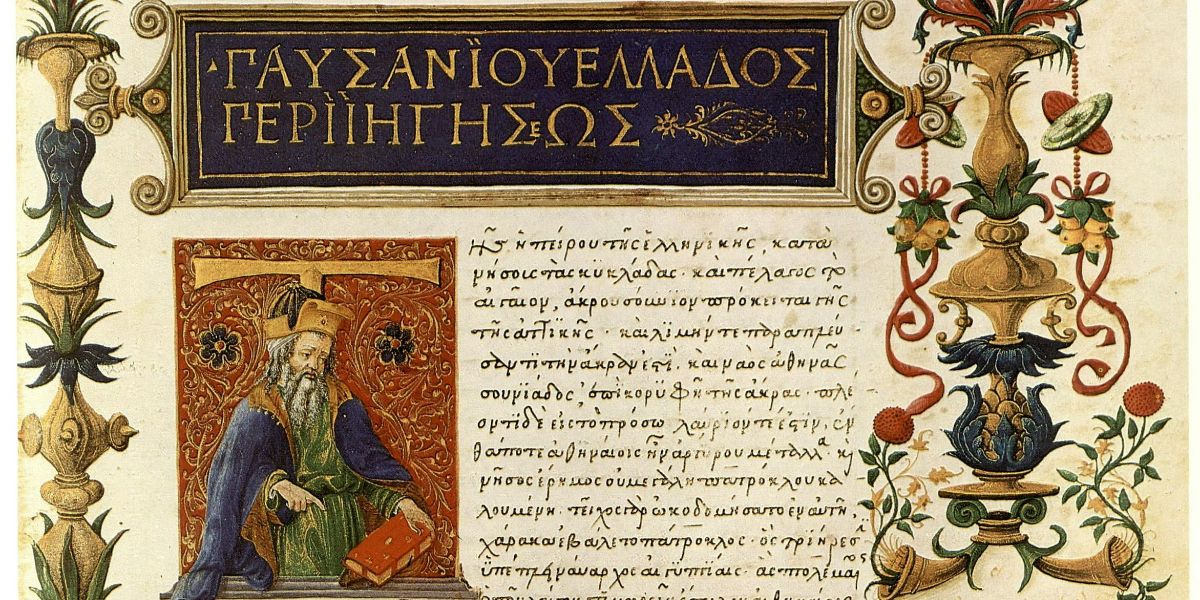 ·ΠΑΥΣΑΝΪΟΥ ΕΛΛΑΔΟΣ
ΠΕΡΙΗΓΗΣΕΩΣ
Τῆς ἠπείρου τῆς ἑλληνικῆς, κατὰ
νήσους τὰς κυκλάδας· καὶ πέλαγος τὸ
αἰγαῖον, ἄκρον σούνιον πρόκειται γῆς
τῆς ἀττικῆς· καὶ λιμήν τε παραπλεύ
σαντι τὴν ἄκραν ἐστὶ, καὶ ναὸς ἀθηνᾶς
σουνιάδος, ἐπὶ κορυφῆ τῆς ἄκρας· πλέ
οντι δὲ εἰς τὸ πρόσω λαύριον τέ ἐστιν, ἔν
θα ποτὲ ἀθηναίοις ἦν ἀργύρου μέταλλα κὶ
νῆσος ἔρημος οὐ μεγάλη πατρόκλου κα
λουμένη· τεῖχος γὰρ ὠκοδομήσατο ἐν αὐτῆ,
χάρακα ἐβάλετο πάτροκλος· ὃς τριήρεσι
ὑπέπλει ναύαρχος αἰγυπτίαις· ἃς πτολεμαῖ